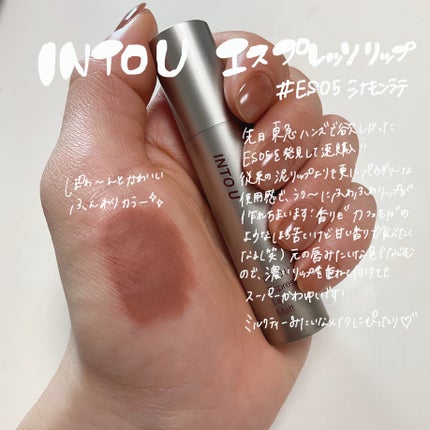 INTO U エスプレッソリップ
#ES05 シナモンラテ
先日東急ハンズで欲しかった
ES05を発見して速購入!
従来の泥リップよりも更にパウダリーな
使用感で、ラク〜にふわふわリップが
作れちゃいます!香りも"カフェモカ"の
ようなほろ苦いけど甘い香りで食べたく
なるし笑)元の唇みたいな色でなじむ
ので、濃いリップを重ね付けても
スーパーかわゆいです!
ミルクティーみたいなメイクにぴったり♡
ぽわ〜んとかわいい
ふんわりカラー✧✧
INTO U